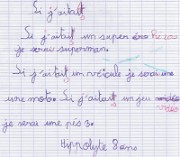 Si j'aitait
Si j'aitait un super Héros
je serai superman.
Si j'aitait un véicule je serai une
une moto. Si j'aitait un jeu vidéo
je serai une ps3.
Hippolyte 8 ans